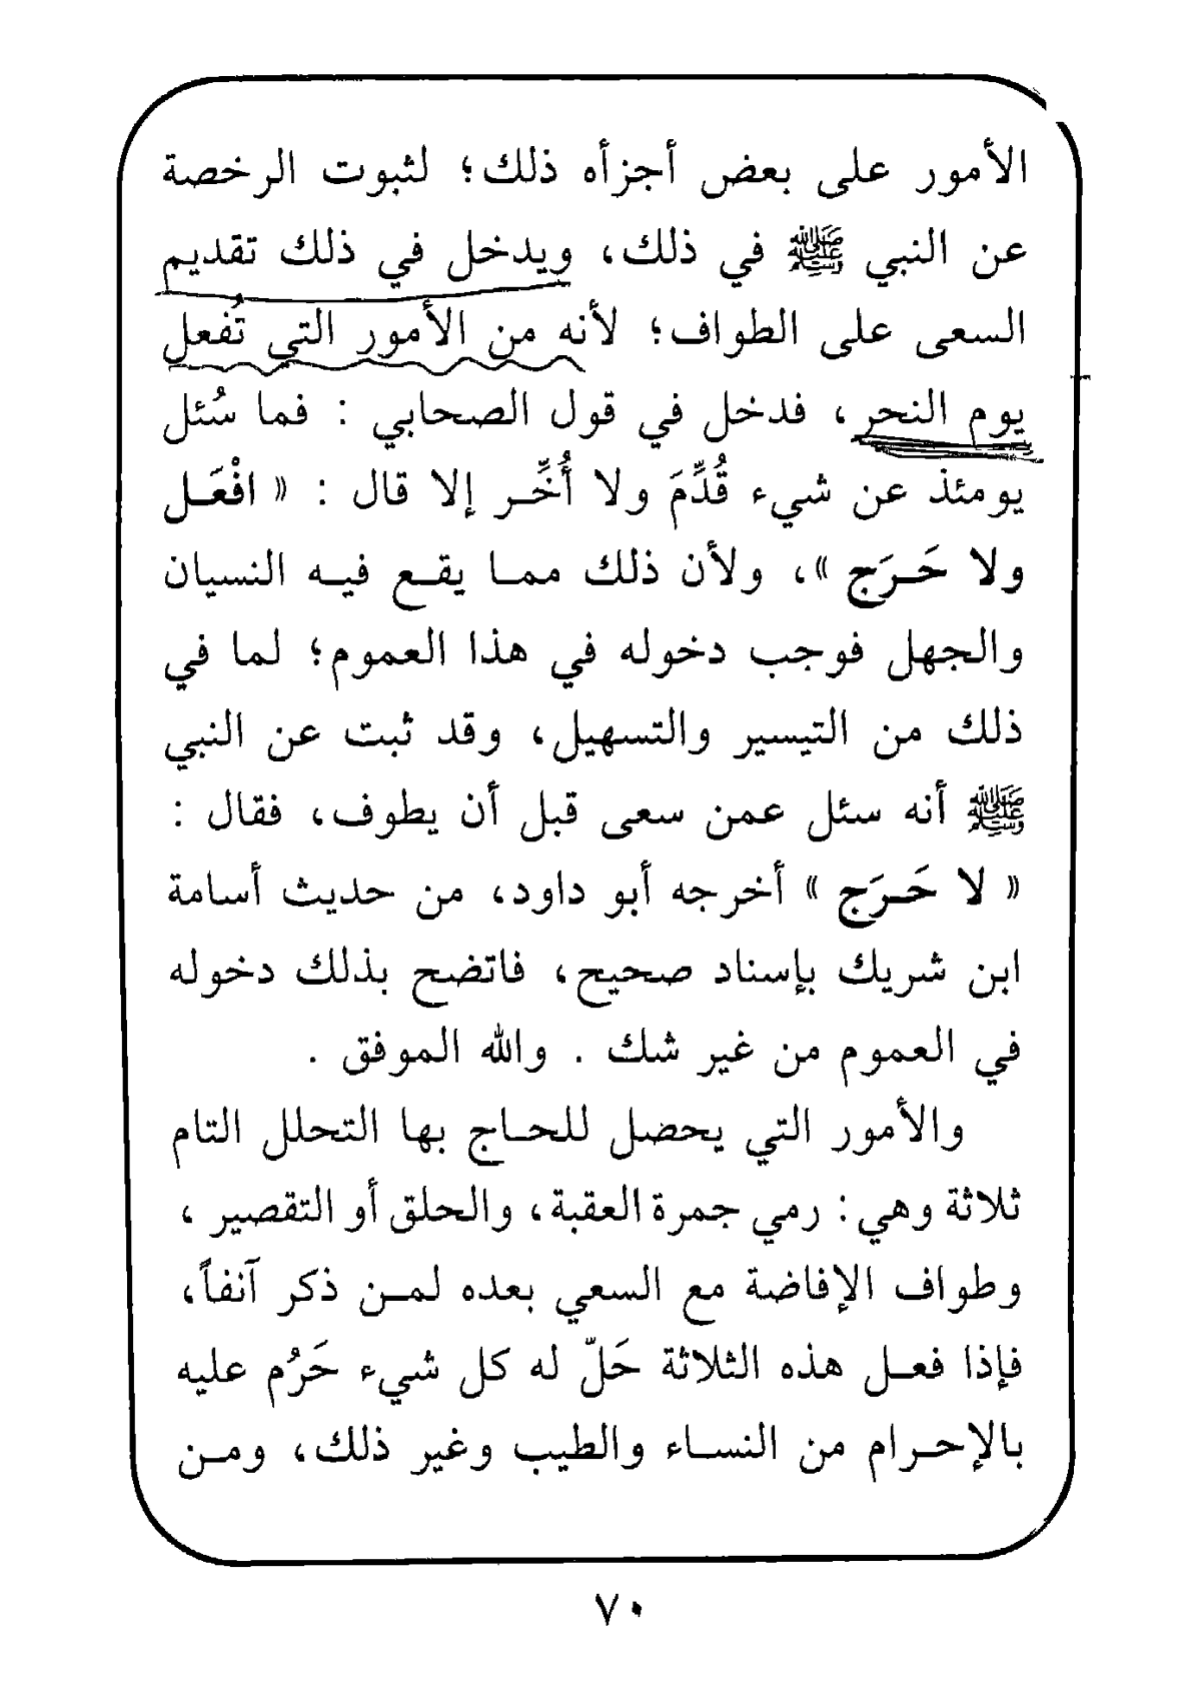 الأمور على بعض أجزأه ذلك؛ لثبوت الرخصة
عن النبي ﷺ في ذلك، ويدخل في ذلك تقديم
السعى على الطواف؛ لأنه من الأمور التي تُفعل
يوم النحر، فدخل في قول الصحابي : فما سُئل
يومئذ عن شيء قُدِّمَ ولا أُخِّـر إلا قال : « افْعَـل
ولا حَـرَج »، ولأن ذلك ممـا يقـع فيـه النسيان
والجهل فوجب دخوله في هذا العموم؛ لما في
ذلك من التيسير والتسهيل، وقد ثبت عن النبي
ﷺ أنه سئل عمن سعى قبل أن يطوف، فقال :
« لا حَـرَج » أخرجه أبو داود، من حديث أسامة
ابن شريك بإسناد صحيح، فاتضح بذلك دخوله
في العموم من غير شك . والله الموفق .
والأمور التي يحصل للحـاج بها التحلل التام
ثلاثة وهي: رمي جمرة العقبة، والحلق أو التقصير ،
وطواف الإفاضة مع السعي بعده لمـن ذكر آنفاً،
فإذا فعـل هذه الثلاثة حَلّ له كل شيء حَرُم عليه
بالإحـرام من النسـاء والطيب وغير ذلك، ومـن
٧٠